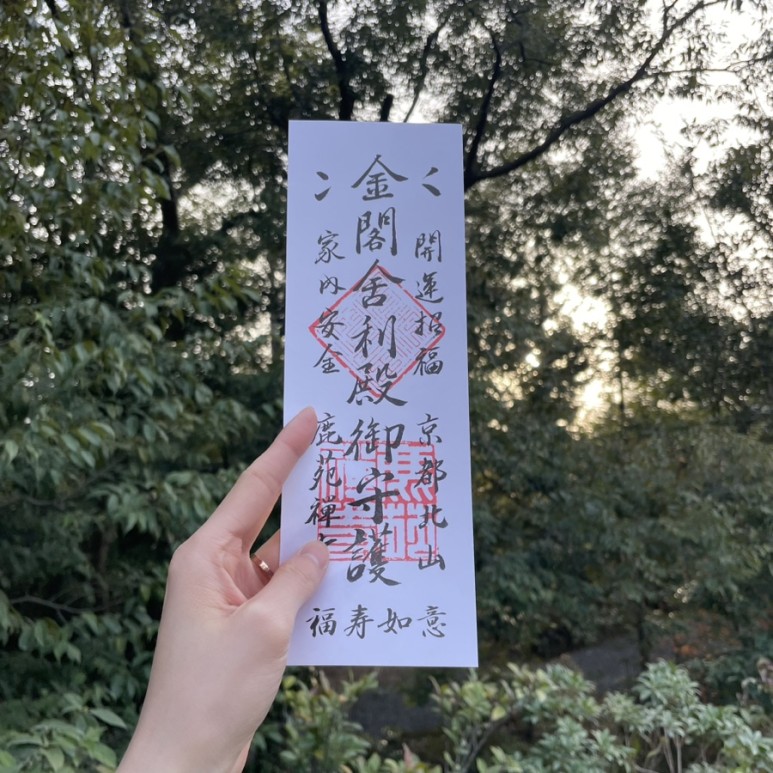 開運招福
京都北山
金閣舎利殿御守護
家内安全
鹿苑禪
福寿如意